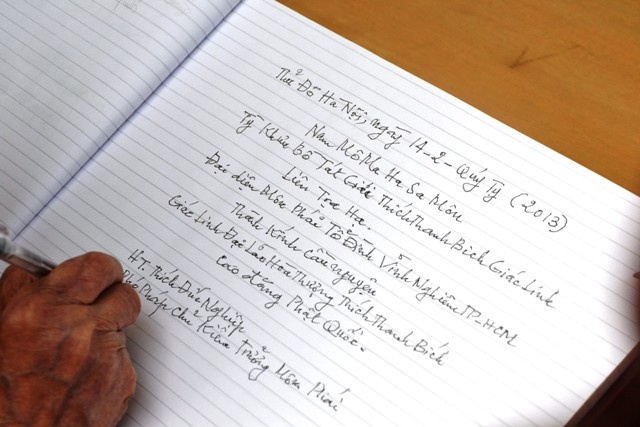 Thủ Đô Hà Nội, ngày 14-2-Quý Tỵ (2013)
Nam Mô Ma Ha Sa Môn
Tỳ Khưu Bồ Tát Giới Thích Thanh Bích Giác Linh
Liên Tọa Hạ.
Đại diện Môn Phái Tổ Đình Vĩnh Nghiêm TP-HCM
Thành Kính Cầu nguyện
Giác Linh Đại Lão Hòa Thượng Thích Thanh Bích
Cao đăng Phật Quốc.
HT. Thích Đức Nghiệp
Phó Pháp Chủ Kiêm Trưởng Môn Phái